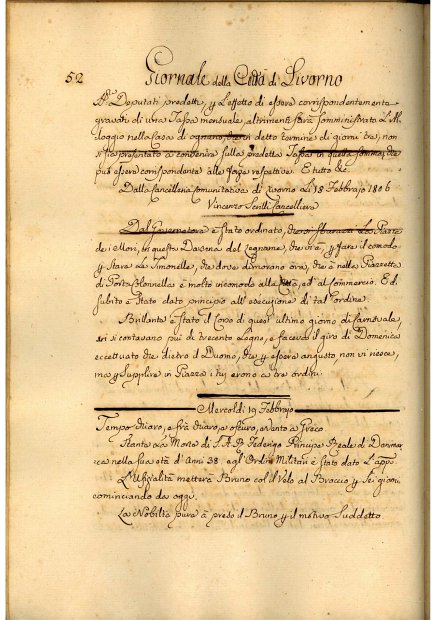 52 Giornale della Città di Livorno
Deputati predetti, p l'effetto di essere corrispondentemente
gravati di una Tassa mensuale, altrimenti sarà somministrato l'Al-
loggio nella Casa di ognuno, che in detto termine di giorni tre, non
si sia presentato a convenire sulla predetta Tassa in quella somma, che
può essere corrispondente alle respettive. E tutto &c.
Dalla Cancelleria Comunitativa di Livorno li 18 Febbrajo 1806
Vincenzo Cancelliere
Dal Governatore è stato ordinato, la Piazza
dei Mori, in questa Darsena del legname, che vi è, p fare il comodo
p Stare Le Timonelle, che dove dimorano ora, che è nella Piazzetta
di Porta Colonnella è molto incomodo alla Città, ed al Commercio. Ed
subito è stato dato principio all'esecuzione di tal'Ordine.
Brillante è stato il Corso di quest'ultimo giorno di Carnevale,
vi si contavano più di trecento Legni, e faceva il giro di Domenica
eccettuato che dietro il Duomo, che p essere angusto non vi riesce,
ma p supplire in Piazza i fili erono a tre ordini.
Mercoldì 19 Febbrajo
Tempo chiaro, e frà chiaro, e oscuro, e vento a Greco
Stante La Morte di S. A. R. Federigo Principe Reale di Danimar-
ca nella sua età d'Anni 38, agl'Ordini Militari è stato dato l'app.
L'Ufizialità metterà Bruno col il Velo al Braccio p Sei giorni
cominciando da oggi.
La Nobiltà pure à preso il Bruno p il motivo Suddetto